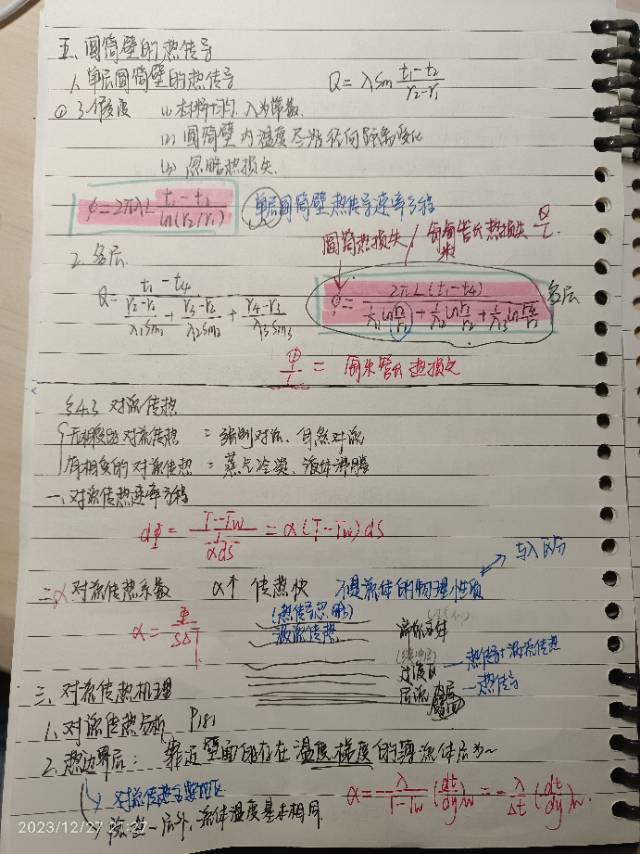 五、圆筒壁的热传导
1. 单层圆筒壁的热传导 Q = λSm (t₁-t₂)/(r₂-r₁)
① 3个假度 (1) 材料均匀, λ为常数.
(2) 圆筒壁内温度只沿径向距离变化
(3) 忽略热损失.
φ = 2πλL (t₁-t₂)/ln(r₂/r₁) 单层圆筒壁热传导速率方程
圆筒热损失 / 每米管长热损失 Q/L
2. 多层.
Q = (t₁-t₄)/((r₂-r₁)/(λ₁Sm₁) + (r₃-r₂)/(λ₂Sm₂) + (r₄-r₃)/(λ₃Sm₃)) φ = 2πL(t₁-t₄)/(1/λ₁ ln + 1/λ₂ ln + 1/λ₃ ln) 多层
Φ/L = 每米管长热损失
§4.3 对流传热
无相变的对流传热 = 强制对流、自然对流
有相变的对流传热 = 蒸气冷凝、液体沸腾
一、对流传热速率方程
dΦ = (T-Tw)/(1/(αdS)) = α(T-Tw)ds
二、α 对流传热系数 α↑ 传热快 不是流体的物理性质 与λ区分
α = Φ/(SΔT)
(热传导忽略)
湍流主体
过渡区 — 热传导+对流传热
层流 — 热传导
三、对流传热机理
1. 对流传热分析 P181
2. 热边界层: 靠近壁面附近存在温度梯度的薄流体层为~
对流传热主要地区 α = -λ/(T-Tw) (dt/dy)w = -λ/Δt (dt/dy)w.
除这一层外, 流体温度基本相同
2023/12/27